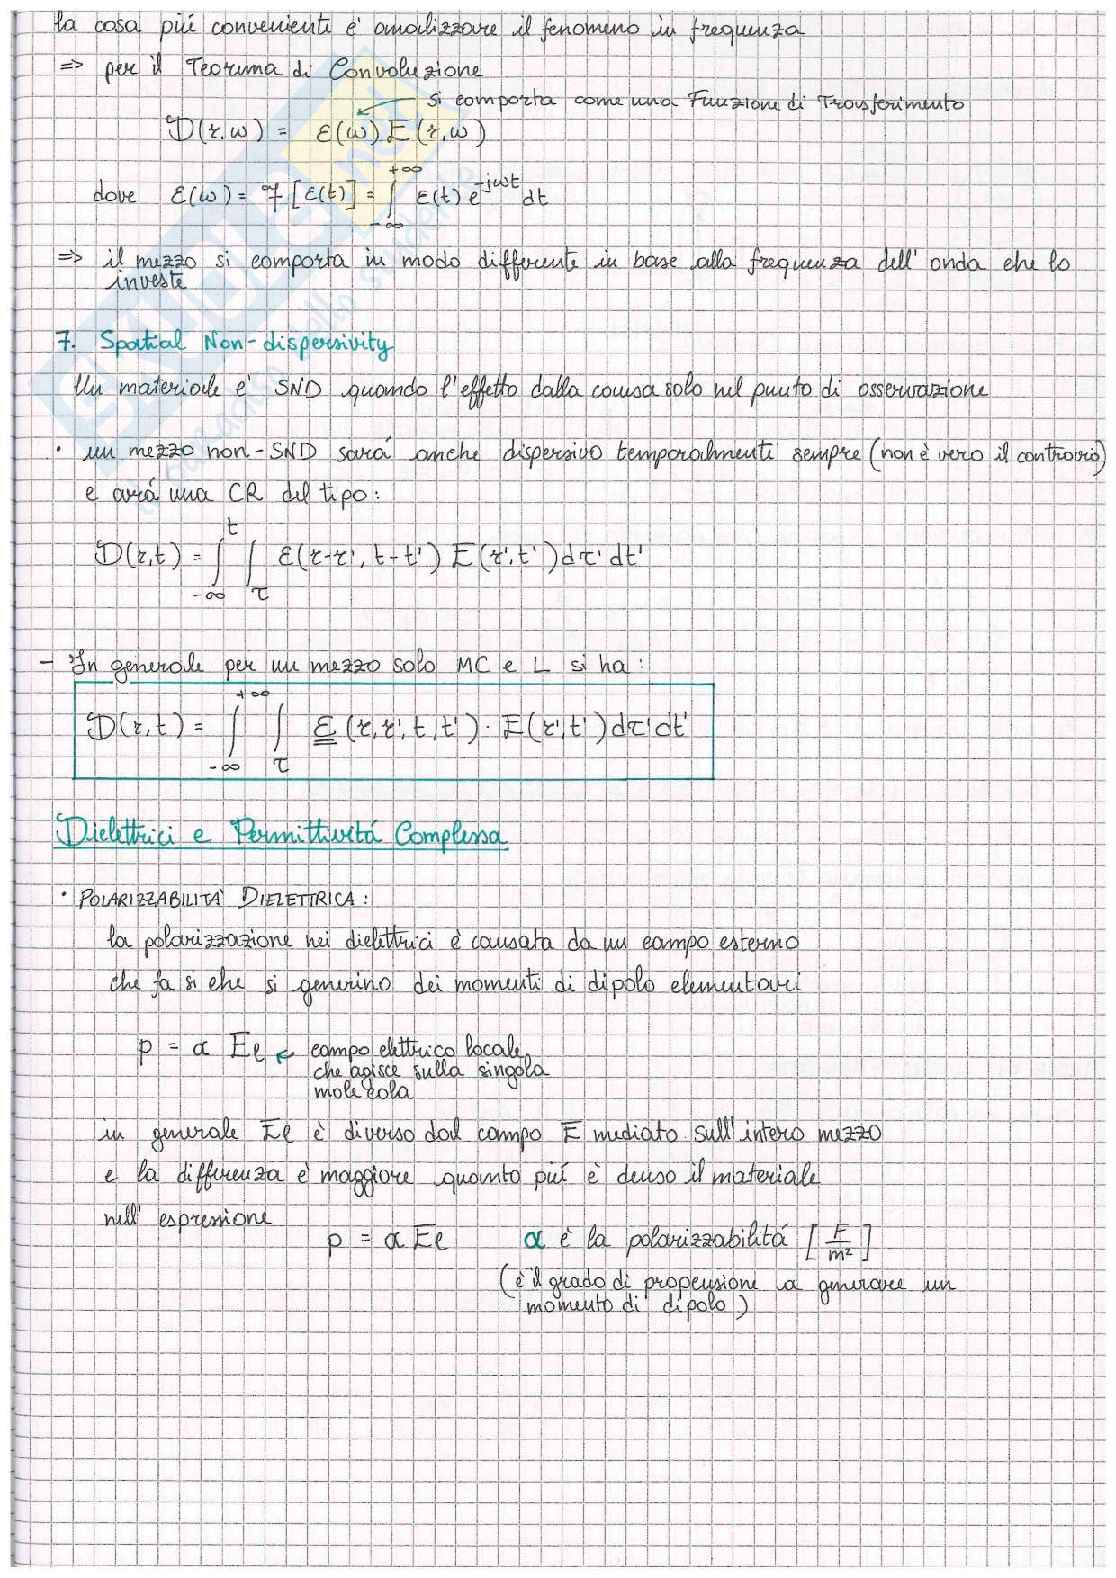 la cosa piú conveniente é analizzare il fenomeno in frequenza
=> per il Teorema di Convoluzione
si comporta come una Funzione di Trasferimento
D(r,ω) = ε(ω) E(r,ω)
dove ε(ω) = F[ε(t)] = ∫_{-∞}^{+∞} ε(t) e^{-jωt} dt
=> il mezzo si comporta in modo differente in base alla frequenza dell'onda che lo
investe
7. Spatial Non-dispersivity
Un materiale é SND quando l'effetto dalla causa solo nel punto di osservazione
• un mezzo non-SND sará anche dispersivo temporalmente sempre (non è vero il contrario)
e avrá una CR del tipo:
D(r,t) = ∫_{-∞}^{t} ∫_τ ε(r-r', t-t') E(r',t') dτ' dt'
- In generale per un mezzo solo MC e L si ha:
D(r,t) = ∫_{-∞}^{+∞} ∫_τ ε(r,r',t,t') · E(r',t') dτ' dt'
Dielettrici e Permittivitá Complessa
• POLARIZZABILITA' DIELETTRICA:
la polarizzazione nei dielettrici è causata da un campo esterno
che fa si che si generino dei momenti di dipolo elementari
p = α Eℓ ← campo elettrico locale,
che agisce sulla singola
molecola
in generale Eℓ è diverso dal campo E mediato sull'intero mezzo
e la differenza é maggiore quanto piú è denso il materiale
nell'espressione
p = α Eℓ α è la polarizzabilitá [F/m²]
(è il grado di propensione a generare un
momento di dipolo)